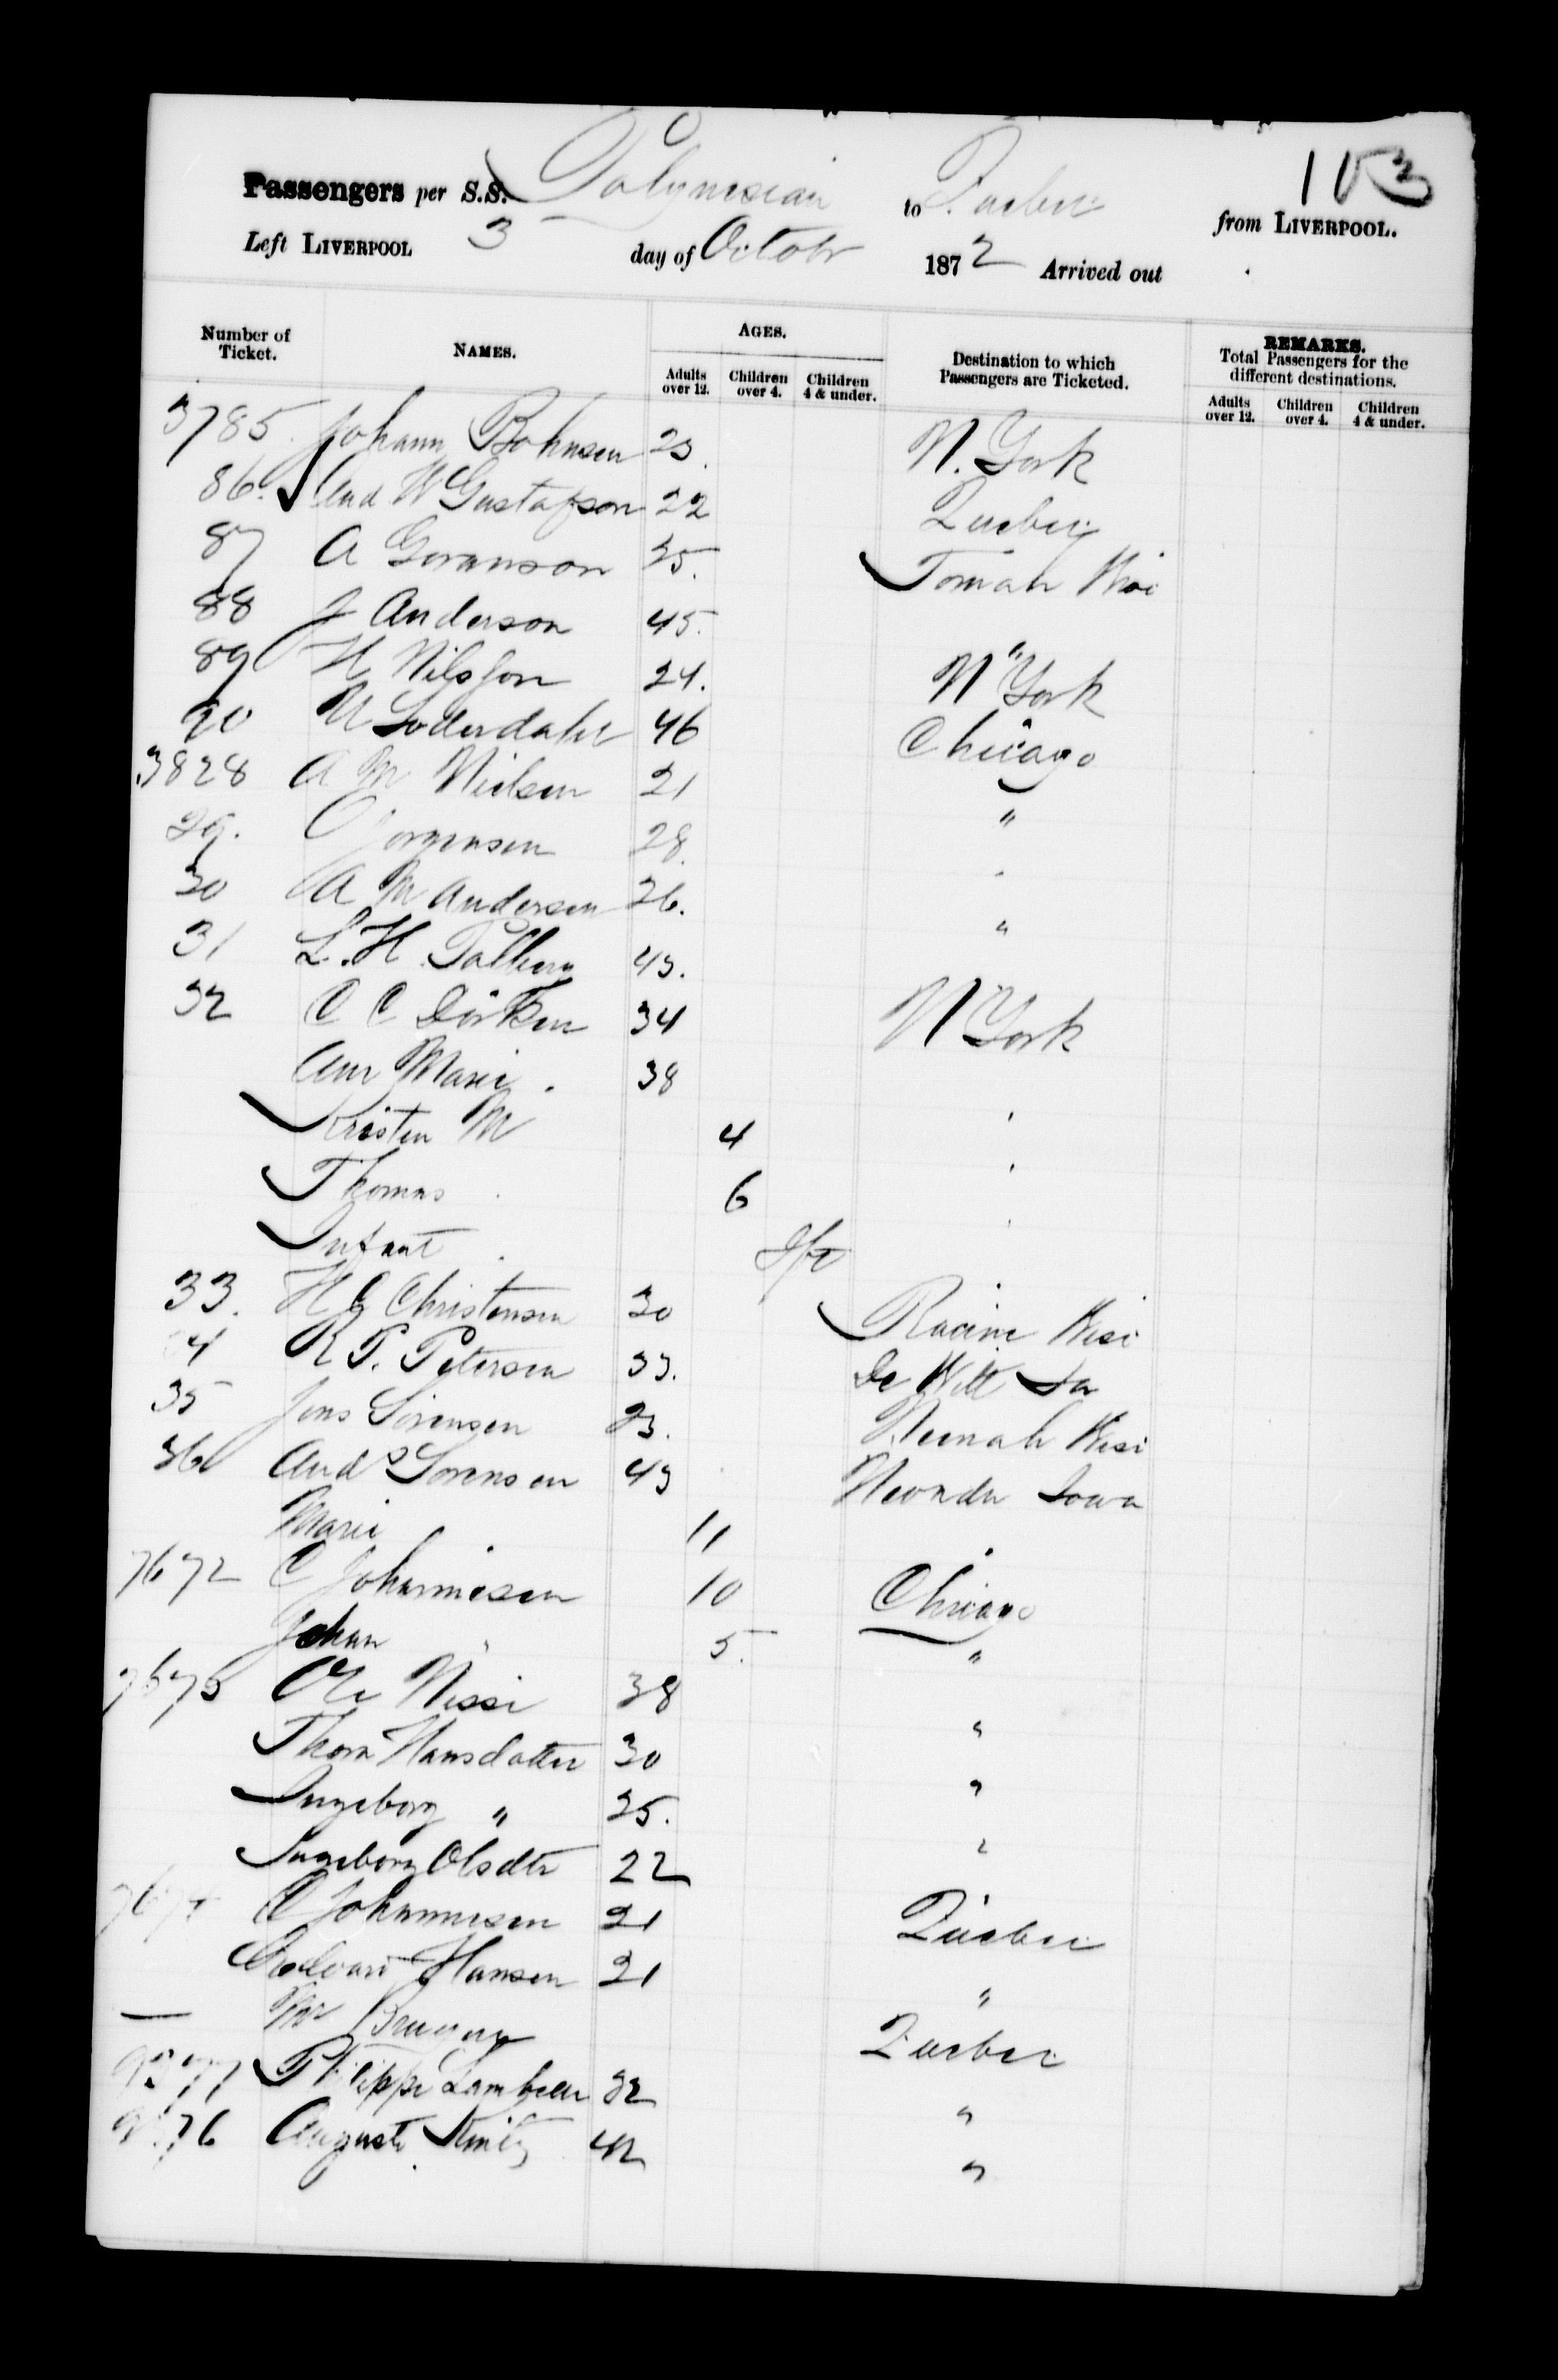 103
Passengers per S.S. Polynesian to Quebec from LIVERPOOL.
Left LIVERPOOL 3 day of October 1872 Arrived out
Number of Ticket. NAMES. AGES. Destination to which Passengers are Ticketed. REMARKS. Total Passengers for the different destinations.
Adults over 12. Children over 4. Children 4 & under. Adults over 12. Children over 4. Children 4 & under.
3785 Johann Bohnsen 23 N. York
86 And W Gustafson 22 Quebec
87 A Goranson 25. Tomah Wisi
88 J Anderson 45. "
89 H Nilsson 24. N York
90 N Soderdahl 46 Chicago
3828 A M Nielsen 21 "
29. O Jorgensen 28.
30 A M Andersen 26. "
31 L. H. 43.
32 C C 34 N York
Ann Marie 38
Kristen M 4
Thomas 6
Infant Inft
33. H C Christensen 30 Racine Wisi
4 R P. Petersen 33. De Witt Ia
35 Jens Sorensen 23. Neenah Wisi
36 Ands Sorensen 43 Iowa
Marie 11
7672 C Johannesen 10 Chicago
Johan " 5. "
7673 Ole 38 "
Thora Hansdatter 30 "
Ingeborg " 25. "
Ingeborg Olsdtr 22
O Johannesen 21 Quebec
Hansen 21 "
— Mr Quebec
77 Philippe 32 "
76 Auguste 42 "